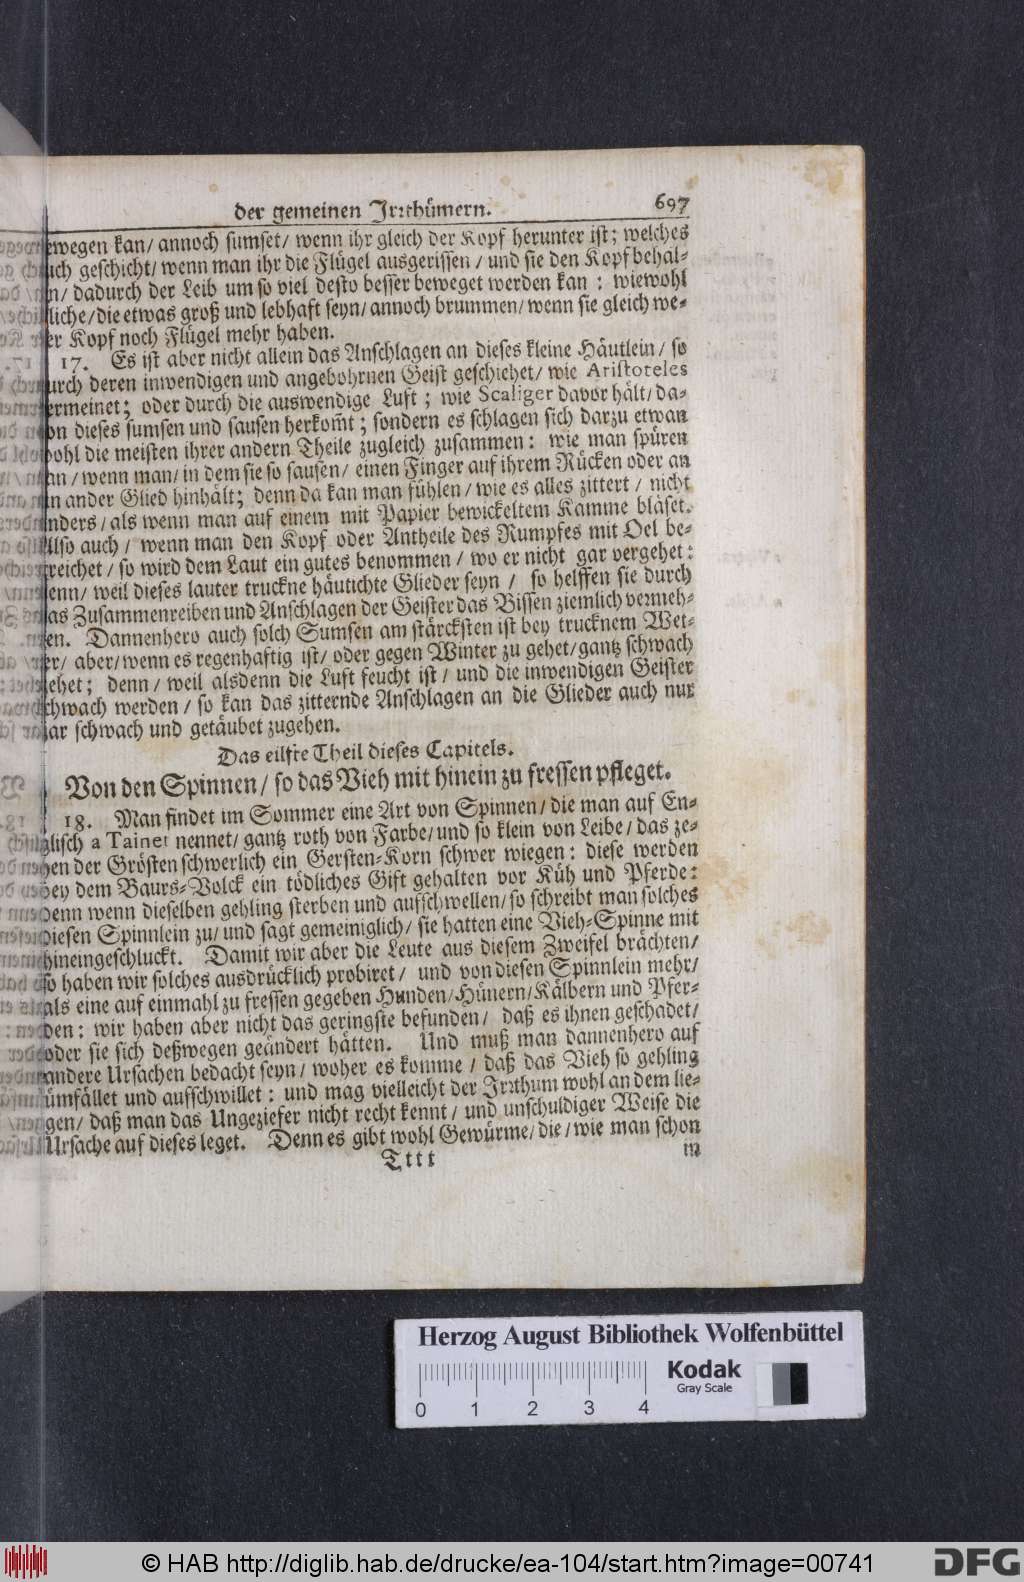 der gemeinen Irrthümern. 697
ewegen kan/ annoch sumset/ wenn ihr gleich der Kopf herunter ist; welches
uch geschicht/ wenn man ihr die Flügel ausgerissen / und sie den Kopf behal-
n/ dadurch der Leib um so viel desto besser beweget werden kan : wiewohl
liche/ die etwas groß und lebhaft seyn/ annoch brummen/ wenn sie gleich we-
er Kopf noch Flügel mehr haben.
17. Es ist aber nicht allein das Anschlagen an dieses kleine Häutlein/ so
urch deren inwendigen und angebohrnen Geist geschiehet/ wie Aristoteles
ermeinet; oder durch die auswendige Luft ; wie Scaliger davor hält/ da-
on dieses sumsen und sausen herkom̃t ; sondern es schlagen sich darzu etwan
wohl die meisten ihrer andern Theile zugleich zusammen : wie man spüren
an / wenn man/ in dem sie so sausen/ einen Finger auf ihrem Rücken oder an
n ander Glied hinhält; denn da kan man fühlen / wie es alles zittert / nicht
nders/ als wenn man auf einem mit Papier bewickeltem Kamme bläset.
Also auch / wenn man den Kopf oder Antheile des Rumpfes mit Oel be-
reichet / so wird dem Laut ein gutes benommen / wo er nicht gar vergehet:
enn/ weil dieses lauter truckne häutichte Glieder seyn / so helffen sie durch
as Zusammenreiben und Anschlagen der Geister das Bissen ziemlich vermeh-
en. Dannenhero auch solch Sumsen am stärcksten ist bey trucknem Wet-
er/ aber/ wenn es regenhaftig ist/ oder gegen Winter zu gehet/ gantz schwach
ehet; denn / weil alsdenn die Luft feucht ist / und die inwendigen Geister
chwach werden / so kan das zitternde Anschlagen an die Glieder auch nur
gar schwach und getäubet zugehen.
Das eilfte Theil dieses Capitels.
Von den Spinnen/ so das Vieh mit hinein zu fressen pfleget.
18. Man findet im Sommer eine Art von Spinnen/ die man auf En-
glisch a Tainet nennet/ gantz roth von Farbe/ und so klein von Leibe/ das ze-
hen der Grösten schwerlich ein Gersten-Korn schwer wiegen : diese werden
bey dem Baurs-Volck ein tödliches Gift gehalten vor Küh und Pferde:
denn wenn dieselben gehling sterben und aufschwellen/ so schreibt man solches
diesen Spinnlein zu/ und sagt gemeiniglich/ sie hatten eine Vieh-Spinne mit
hineingeschluckt. Damit wir aber die Leute aus diesem Zweifel brächten/
so haben wir solches ausdrücklich probiret / und von diesen Spinnlein mehr/
als eine auf einmahl zu fressen gegeben Hunden/ Hünern/ Kälbern und Pfer-
den : wir haben aber nicht das geringste befunden/ daß es ihnen geschadet/
oder sie sich deßwegen geändert hätten. Und muß man dannenhero auf
andere Ursachen bedacht seyn/ woher es komme / daß das Vieh so gehling
ümfället und aufschwillet : und mag vielleicht der Irrthum wohl an dem lie-
gen/ daß man das Ungeziefer nicht recht kennt/ und unschuldiger Weise die
Ursache auf dieses leget. Denn es gibt wohl Gewürme/ die/ wie man schon
Tttt in
Herzog August Bibliothek Wolfenbüttel
Kodak
Gray Scale
0 1 2 3 4
© HAB http://diglib.hab.de/drucke/ea-104/start.htm?image=00741
DFG